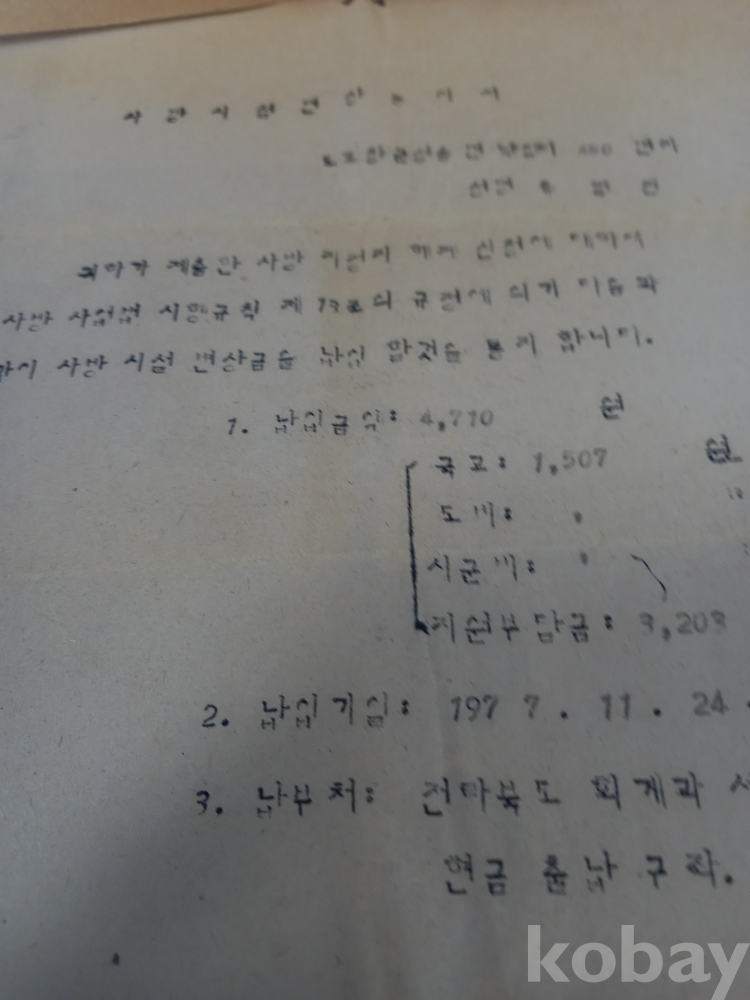 사방시설변상통지서
귀하가 제출한 사방 지정지 해제 신청에 대하여
사방 사업법 시행규칙 제 13조의 규정에 의거 다음과
같이 사방 시설 변상금을 납입 할것을 통지 합니다.
1. 납입금액: 4,710 원
국고: 1,507 원
도비: "
시군비: "
지원부담금: 3,203
2. 납입기일: 1977. 11. 24.
3. 납부처: 전라북도 회계과
현금 출납 구좌.
kobay